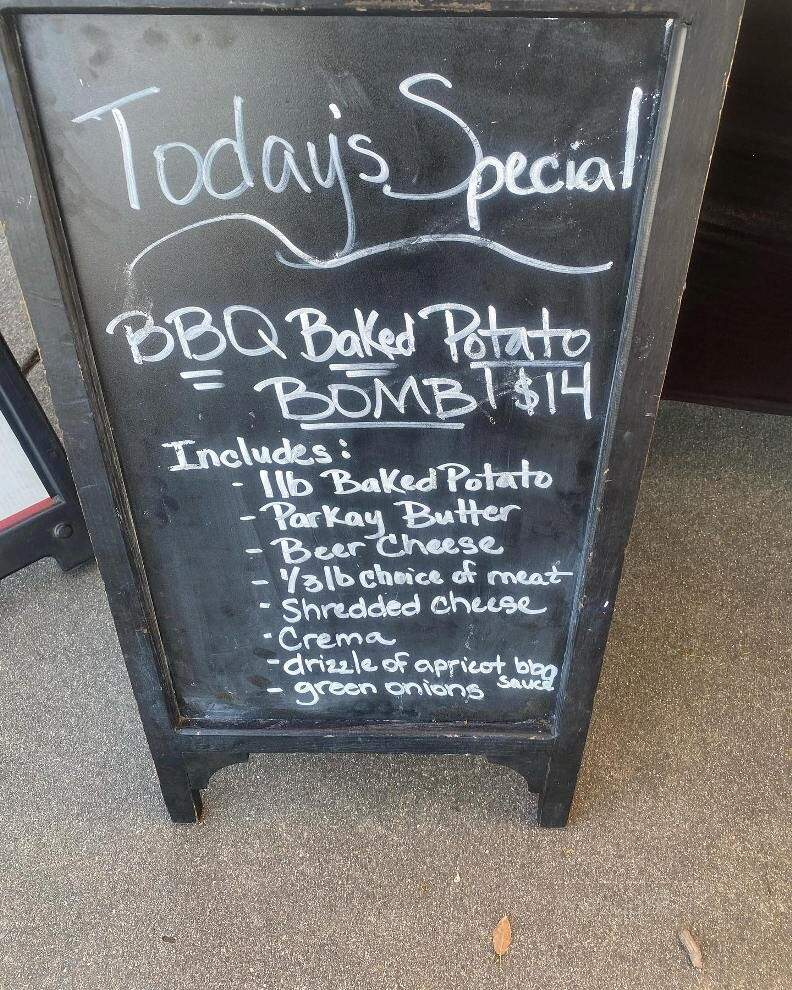 Today's Special
BBQ Baked Potato
BOMB! $14
Includes:
- 1lb Baked Potato
- Parkay Butter
- Beer Cheese
- 1/3 lb choice of meat
- Shredded cheese
- Crema
- drizzle of apricot bbq
sauce
- green onions